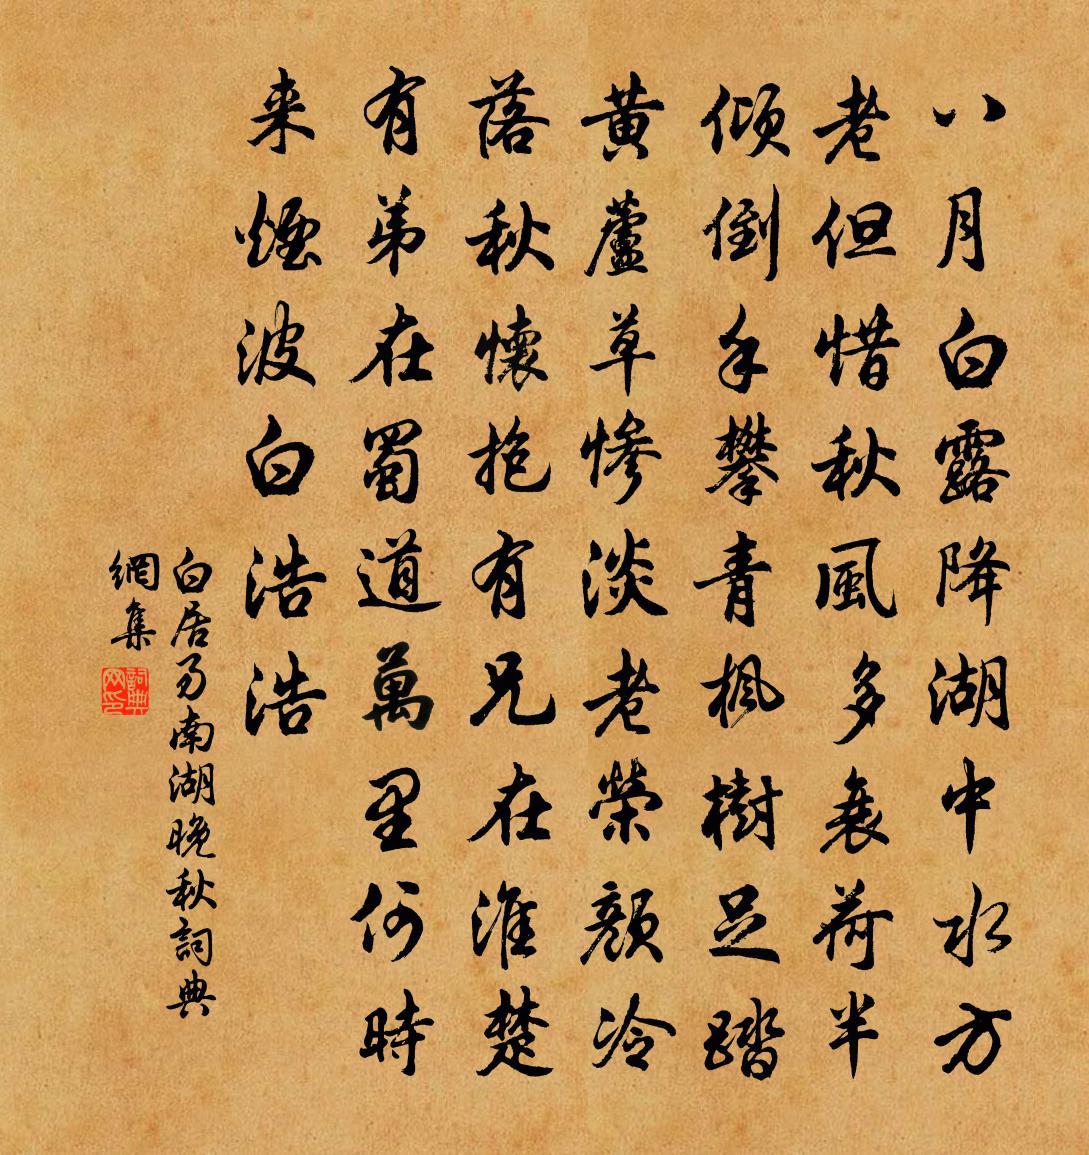 八月白露降湖中水方
老但惜秋風多衰荷半
傾倒手攀青楓樹足踏
黃蘆草慘淡老榮顏冷
落秋懷抱有兄在淮楚
有弟在蜀道萬里何時
来煙波白浩浩
白居易南湖晚秋詞典
網集
詞典网印